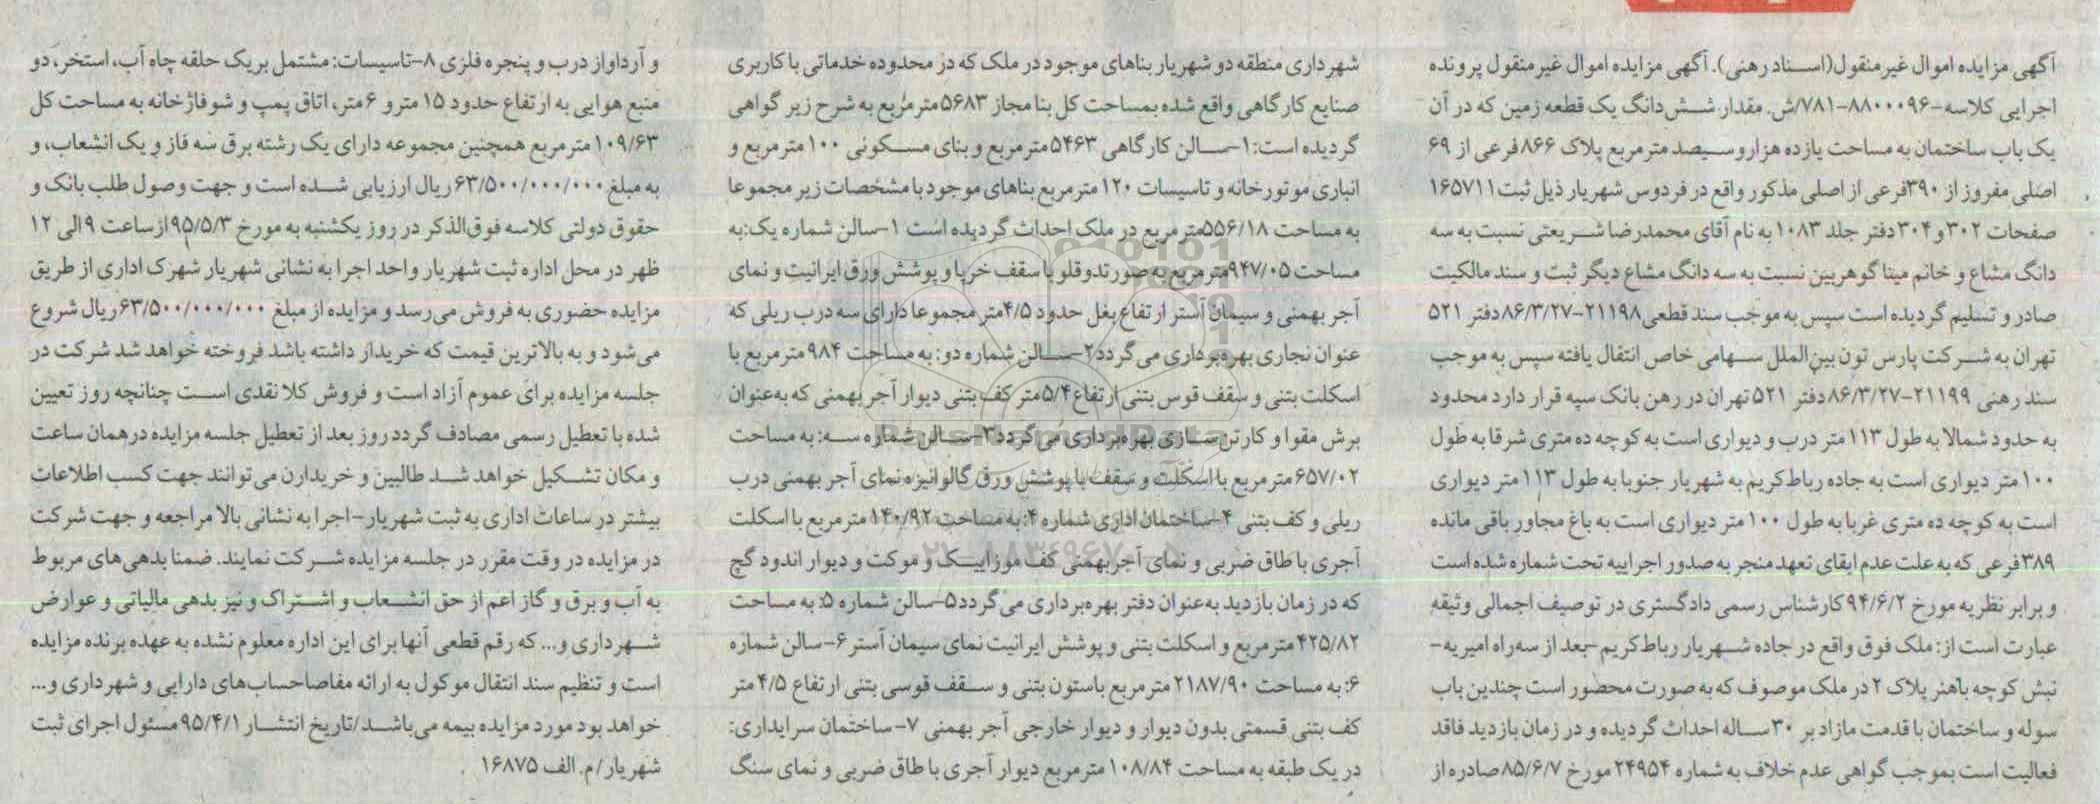 آگهی مزایده اموال غیرمنقول(اسناد رهنی). آگهی مزایده اموال غیرمنقول پرونده
اجرایی کلاسه-۸۸۰۰۰۹۶-۷۸۱/ش. مقدار شش‌دانگ یک قطعه زمین که در آن
یک باب ساختمان به مساحت یازده هزارو سیصد مترمربع پلاک ۸۶۶فرعی از ۶۹
اصلی مفروز از ۳۹۰فرعی از اصلی مذکور واقع در فردوس شهریار ذیل ثبت۱۶۵۷۱۱
صفحات ۳۰۲و ۳۰۴دفتر جلد ۱۰۸۳ به نام آقای محمدرضا شریعتی نسبت به سه
دانگ مشاع و خانم مینا گوهربین نسبت به سه دانگ مشاع دیگر ثبت و سند مالکیت
صادر و تسلیم گردیده است سپس به موجب سند قطعی۲۱۱۹۸-۸۶/۳/۲۷دفتر ۵۲۱
تهران به شرکت پارس تون بین‌الملل سهامی خاص انتقال یافته سپس به موجب
سند رهنی ۲۱۱۹۹-۸۶/۳/۲۷دفتر ۵۲۱تهران در رهن بانک سپه قرار دارد محدود
به حدود شمالا به طول ۱۱۳ متر درب و دیواری است به کوچه ده متری شرقا به طول
۱۰۰متر دیواری است به جاده رباط‌کریم به شهریار جنوبا به طول ۱۱۳متر دیواری
است به کوچه ده متری غربا به طول ۱۰۰ متر دیواری است به باغ مجاور باقی مانده
۳۸۹فرعی که به علت عدم ایفای تعهد منجر به صدور اجراییه تحت شماره شده است
و برابر نظریه مورخ ۹۴/۶/۲کارشناس رسمی دادگستری در توصیف اجمالی وثیقه
عبارت است از: ملک فوق واقع در جاده شهریار رباط‌کریم-بعد از سه‌راه امیریه-
نبش کوچه باهنر پلاک ۲ در ملک موصوف که به صورت محضور است چندین باب
سوله و ساختمان با قدمت مازاد بر ۳۰ساله احداث گردیده و در زمان بازدید فاقد
فعالیت است بموجب گواهی عدم خلاف به شماره ۲۴۹۵۴مورخ ۸۵/۶/۷صادره از
شهرداری منطقه دو شهریار بناهای موجود در ملک که در محدوده خدماتی با کاربری
صنایع کارگاهی واقع شده بمساحت کل بنا مجاز ۵۶۸۳مترمربع به شرح زیر گواهی
گردیده است:۱-سالن کارگاهی ۵۴۶۳مترمربع و بنای مسکونی ۱۰۰مترمربع و
انباری موتورخانه و تاسیسات ۱۲۰مترمربع بناهای موجود با مشخصات زیر مجموعا
به مساحت ۵۵۶/۱۸متر مربع در ملک احداث گردیده است ۱-سالن شماره یک:به
مساحت ۹۴۷/۰۵مترمربع به صورتدوقلو با سقف خرپا و پوشش ورق ایرانیت و نمای
آجر بهمنی و سیمان آستر ارتفاع بغل حدود ۴/۵متر مجموعا دارای سه درب ریلی که
عنوان نجاری بهره‌برداری می‌گردد۲-سالن شماره دو: به مساحت ۹۸۴مترمربع با
اسکلت بتنی و سقف قوس بتنی ارتفاع ۵/۴متر کف بتنی دیوار آجر بهمنی که به‌عنوان
برش مقوا و کارتن‌سازی بهره‌برداری می‌گردد۳-سالن شماره سه: به مساحت
۶۵۷/۰۲مترمربع با اسکلت و سقف با پوشش ورق گالوانیزه نمای آجر بهمنی درب
ریلی و کف بتنی ۴-ساختمان اداری شماره ۴: به مساحت ۱۴۰/۹۲مترمربع با اسکلت
آجری با طاق ضربی و نمای آجربهمنی کف موزاییک و موکت و دیوار اندود گچ
که در زمان بازدید به‌عنوان دفتر بهره‌برداری می‌گردد۵-سالن شماره ۵: به مساحت
۴۲۵/۸۲مترمربع و اسکلت بتنی و پوشش ایرانیت نمای سیمان آستر ۶-سالن شماره
۶: به مساحت ۲۱۸۷/۹۰مترمربع باستون بتنی و سقف قوسی بتنی ارتفاع ۴/۵ متر
کف بتنی قسمتی بدون دیوار و دیوار خارجی آجر بهمنی ۷-ساختمان سرایداری:
در یک طبقه به مساحت ۱۰۸/۸۴مترمربع دیوار آجری با طاق ضربی و نمای سنگ
و آرداواز درب و پنجره فلزی ۸-تاسیسات: مشتمل بریک حلقه چاه آب، استخر، دو
منبع هوایی به ارتفاع حدود ۱۵مترو ۶متر، اتاق پمپ و شوفاژخانه به مساحت کل
۱۰۹/۶۳مترمربع همچنین مجموعه دارای یک رشته برق سه فاز و یک انشعاب، و
به مبلغ ۶۳/۵۰۰/۰۰۰/۰۰۰ریال ارزیابی شده است و جهت وصول طلب بانک و
حقوق دولتی کلاسه فوق‌الذکر در روز یکشنبه به مورخ ۹۵/۵/۳ازساعت ۹الی ۱۲
ظهر در محل اداره ثبت شهریار واحد اجرا به نشانی شهریار شهرک اداری از طریق
مزایده حضوری به فروش می‌رسد و مزایده از مبلغ ۶۳/۵۰۰/۰۰۰/۰۰۰ریال شروع
می‌شود و به بالاترین قیمت که خریدار داشته باشد فروخته خواهد شد شرکت در
جلسه مزایده برای عموم آزاد است و فروش کلا نقدی است چنانچه روز تعیین
شده با تعطیل رسمی مصادف گردد روز بعد از تعطیل جلسه مزایده درهمان ساعت
و مکان تشکیل خواهد شد طالبین و خریدارن می‌توانند جهت کسب اطلاعات
بیشتر در ساعات اداری به ثبت شهریار-اجرا به نشانی بالا مراجعه و جهت شرکت
در مزایده در وقت مقرر در جلسه مزایده شرکت نمایند. ضمنا بدهی‌های مربوط
به آب و برق و گاز اعم از حق انشعاب و اشتراک و نیز بدهی مالیاتی و عوارض
شهرداری و... که رقم قطعی آنها برای این اداره معلوم نشده به عهده برنده مزایده
است و تنظیم سند انتقال موکول به ارائه مفاصاحساب‌های دارایی و شهرداری و...
خواهد بود مورد مزایده بیمه می‌باشد/تاریخ انتشار ۹۵/۴/۱مسئول اجرای ثبت
شهریار/م.الف ۱۶۸۷۵
ParsNamadData
۰۲۱-۸۸۳۴۹۶۷۰-۵